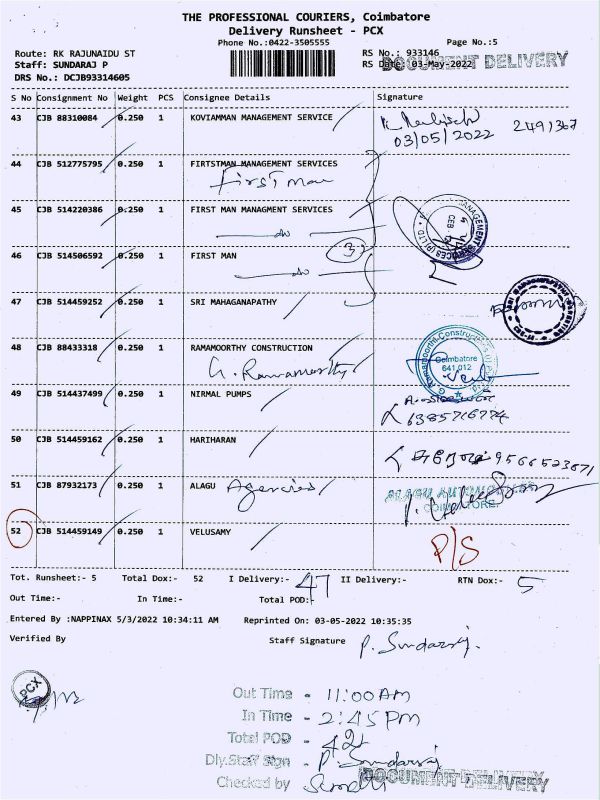 THE PROFESSIONAL COURIERS, Coimbatore
Delivery Runsheet - PCX
Phone No.:0422-3505555
Page No.:5
Route: RK RAJUNAIDU ST
RS No.: 933146
Staff: SUNDARAJ P
RS Date: 03-May-2022
DOCUMENT DELIVERY
DRS No.: DCJB93314605
S No Consignment No Weight PCS Consignee Details Signature
43 CJB 88310084 0.250 1 KOVIAMMAN MANAGEMENT SERVICE
03/05/2022 2491367
44 CJB 512775795 0.250 1 FIRTSTMAN MANAGEMENT SERVICES
First man
45 CJB 514220386 0.250 1 FIRST MAN MANAGMENT SERVICES
do
46 CJB 514506592 0.250 1 FIRST MAN
3
do
47 CJB 514459252 0.250 1 SRI MAHAGANAPATHY
48 CJB 88433318 0.250 1 RAMAMOORTHY CONSTRUCTION
G. Ramamoorthy
Coimbatore
641 012
49 CJB 514437499 0.250 1 NIRMAL PUMPS
6385716774
50 CJB 514459162 0.250 1 HARIHARAN
9566523671
51 CJB 87932173 0.250 1 ALAGU Agencies
52 CJB 514459149 0.250 1 VELUSAMY
P/S
Tot. Runsheet:- 5 Total Dox:- 52 I Delivery:- 47 II Delivery:- RTN Dox:- 5
Out Time:- In Time:- Total POD:-
Entered By :NAPPINAX 5/3/2022 10:34:11 AM Reprinted On: 03-05-2022 10:35:35
Verified By Staff Signature P. Sundarraj.
PCX
Out Time - 11:00 AM
In Time - 2:45 PM
Total POD - 42
Dly.Staff Sign - P. Sundarraj
Checked by
DOCUMENT DELIVERY